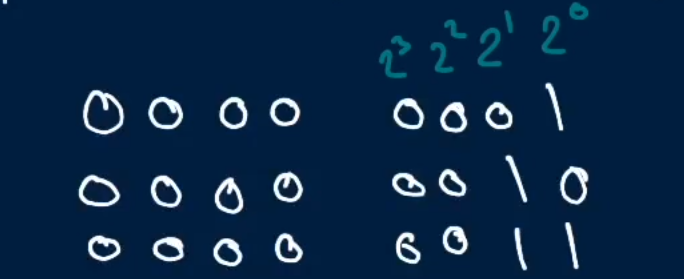 2³ 2² 2¹ 2⁰
0 0 0 0 0 0 0 1
0 0 0 0 0 0 1 0
0 0 0 0 0 0 1 1